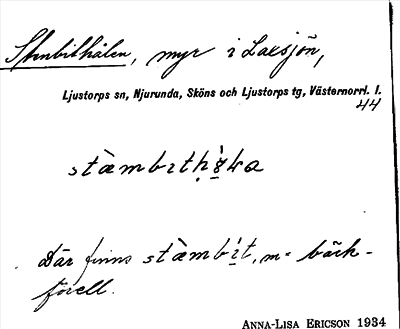 Stenbithålen, myr i Laxsjön,
Ljustorps sn, Njurunda, Sköns och Ljustorps tg, Västernorrl. l.
44
Där finns stàmbìt, m = bäck-
förell.
ANNA-LISA ERICSON 1934